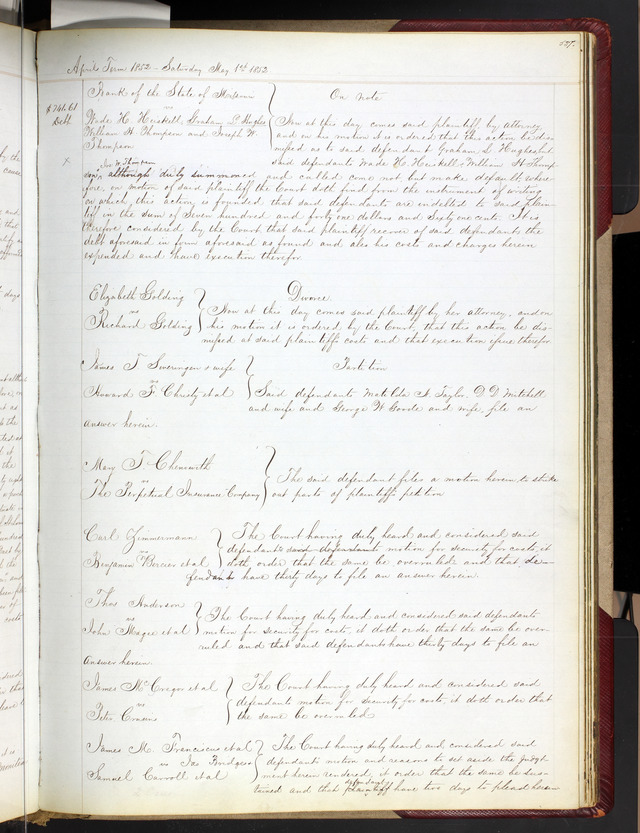 527.
April Term 1852 - Saturday May 1st 1852
Bank of the State of Missouri
On note
$741.61
Debt
vs
Wade H. Heiskell, Graham L. Hughes
William H. Thompson and Joseph W.
Thompson
Now at this day comes said plaintiff by attorney
and on his motion it is ordered that this action be dis-
missed as to said defendant Graham L Hughes and
x
said defendants Wade H. Heiskell, William H Thomp
Jos. W. Thompson
son, although duly summoned and called come not but make default where
fore, on motion of said plaintiff the Court doth find from the instrument of writing
on which this action is founded that said defendants are indebted to said plain-
tiff in the sum of Seven hundred and forty one dollars and Sixty one cents. It is
therefore considered by the Court that said plaintiff recover of said defendants the
debt aforesaid in form aforesaid as found and also his costs and charges herein
expended and have execution therefor.
Elizabeth Golding
Divorce.
vs
Richard Golding
Now at this day comes said plaintiff by her attorney, and on
his motion it is ordered by the Court, that this action be dis-
missed at said plaintiffs costs and that execution issue therefor.
James T Sweringen & wife
Partition
vs
Howard F. Christy et al
Said defendants Matilda N. Taylor, D. D. Mitchell
and wife and George W Goode and wife file an
answer herein.
Mary T. Chenworth
vs
The Perpetual Insurance Company
The said defendant files a motion herein to strike
out parts of plaintiffs petition
Carl Zimmermann
vs
Benjamin Bercier et al
The Court having duly heard and considered said
defendants said defendants motion for security for costs, it
doth order that the same be overruled and that de-
fendants have thirty days to file an answer herein.
Thos Anderson
vs
John Magee et al
The Court having duly heard and considered said defendants
motion for security for costs, it doth order that the same be over-
ruled and that said defendants have thirty days to file an
answer herein.
James McCregor et al
vs
Peter Cousins
The Court having duly heard and considered said
defendants motion for security for costs, it doth order that
the same be overruled
James M. Franciscus et al
vs Jas Bridges
Samuel Carroll et al
The Court having duly heard and considered said
defendants motion and reasons to set aside the judg-
ment herein rendered, it order that the same be sus-
defendants
tained and that plaintiff have two days to plead herein